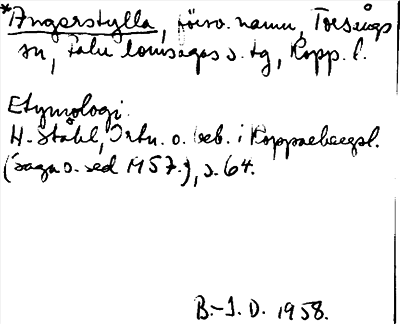 *Ångerstylla, försv. namn, Torsångs
sn, Falu domsagas s. tg, Kopp. l.
Etymologi.
H. Ståhl, Ortn. o. beb. i Kopparbergsl.
(Saga o. sed 1957.), s. 64.
B.-I. D. 1958.